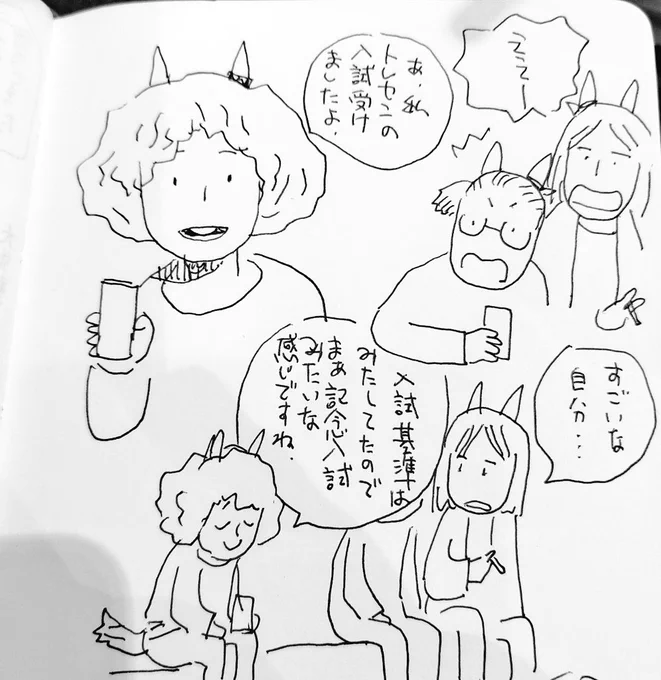 ええー
あ、私
トレセンの
入試受け
ましたよ.
すごいな
自分・・・
入試基準は
みたしてたので
まぁ記念入試
みたいな
感じですね.